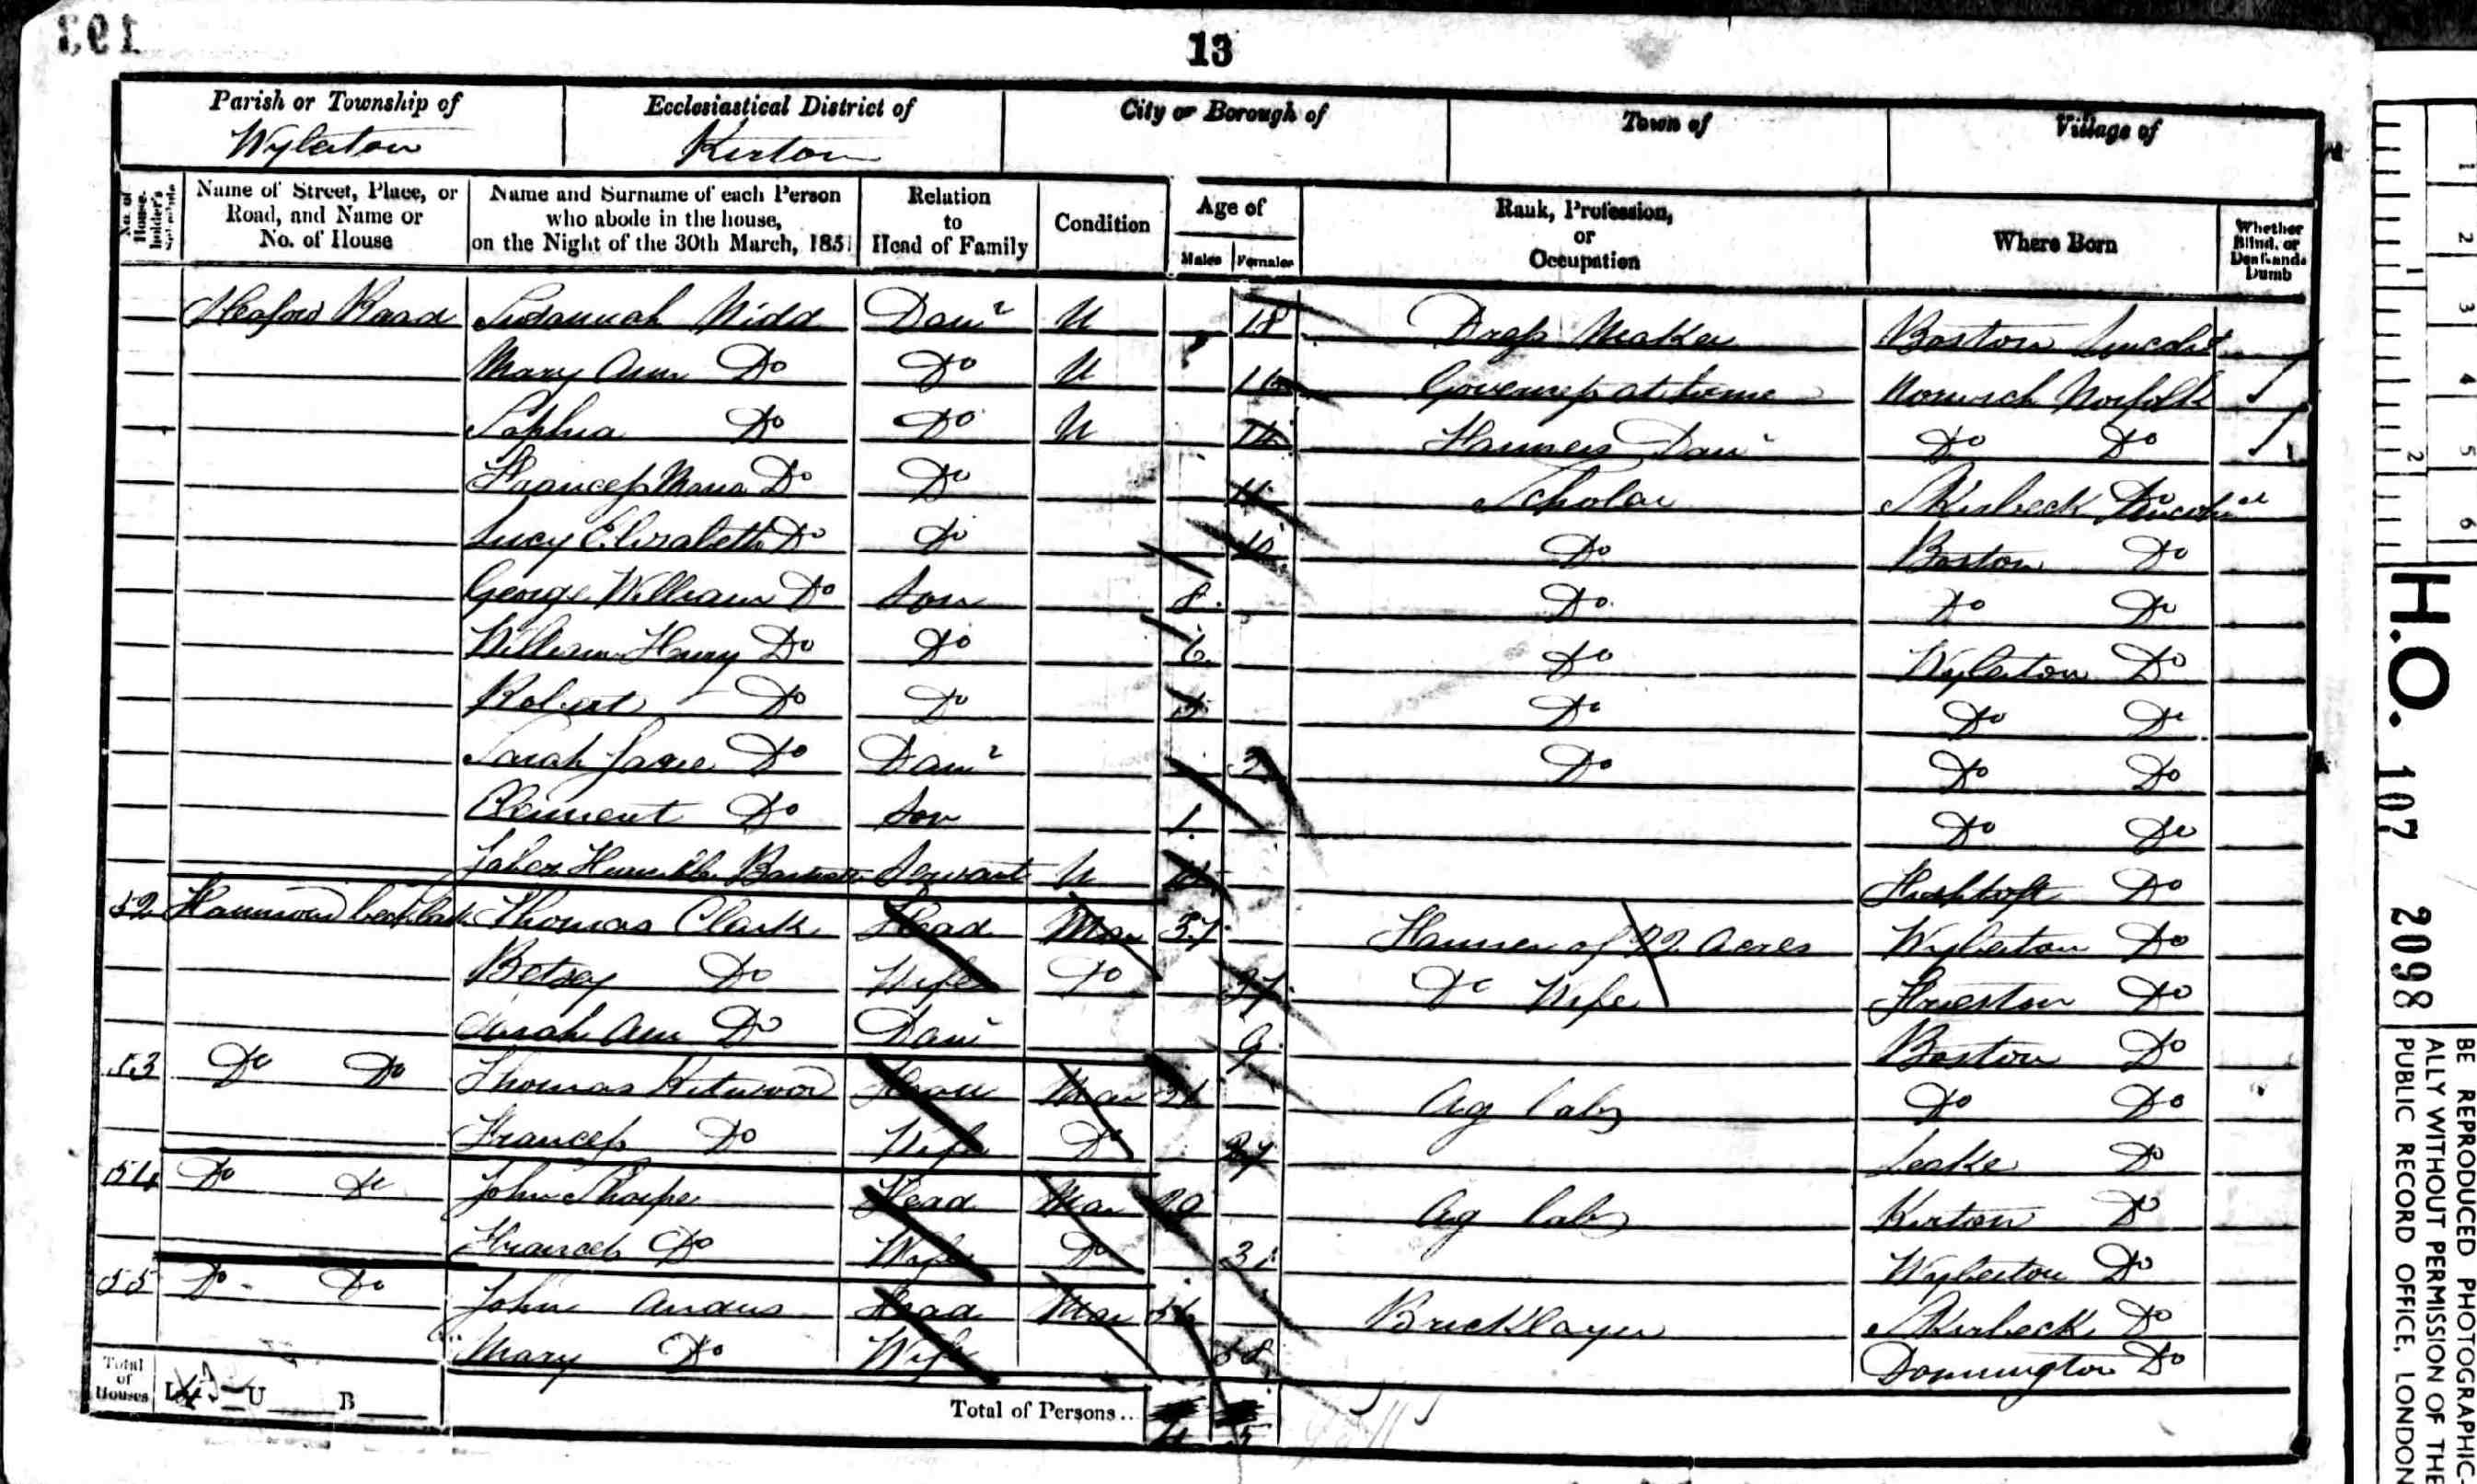 193
13
Parish or Township of Ecclesiastical District of City or Borough of Town of Village of
Wyberton Kirton
No. of Householder's Schedule Name of Street, Place, or Road, and Name or No. of House Name and Surname of each Person who abode in the house, on the Night of the 30th March, 1851 Relation to Head of Family Condition Age of Males Females Rank, Profession, or Occupation Where Born Whether Blind, or Deaf-and-Dumb
Sleaford Road Susannah Nidd Daur U 18 Dress Maker Boston
Mary Ann Do Do U Governess at home Norwich Norfolk
Sophia Do Do U 14 Farmers Daur Do Do
Frances Maria Do Do 11 Scholar Skirbeck
Lucy Elizabeth Do Do 10 Do Boston Do
George William Do Son 8 Do Do Do
William Henry Do Do 6 Do Wyberton Do
Robert Do Do 5 Do Do Do
Sarah Jane Do Daur Do Do Do
Clement Do Son 1 Do Do
Servant U Do
52 Thomas Clark Head Mar 37 Farmer of Acres Wyberton Do
Betsey Do Wife Do Do Wife Do
Sarah Ann Do Daur 9 Boston Do
53 Do Do Thomas Head Mar Ag lab Do Do
Frances Do Wife Do Leake Do
54 Do Do John Thorpe Head Mar Ag lab Kirton Do
Frances Do Wife Do 31 Wyberton Do
55 Do Do John Head Mar Bricklayer Skirbeck Do
Mary Do Wife 58 Donnington Do
Total of Houses I U B Total of Persons..
4 5
H.O. 107 2098
BE REPRODUCED PHOTOGRAPHIC-
ALLY WITHOUT PERMISSION OF THE
PUBLIC RECORD OFFICE, LONDON
1 2 3 4 5 6
1 2